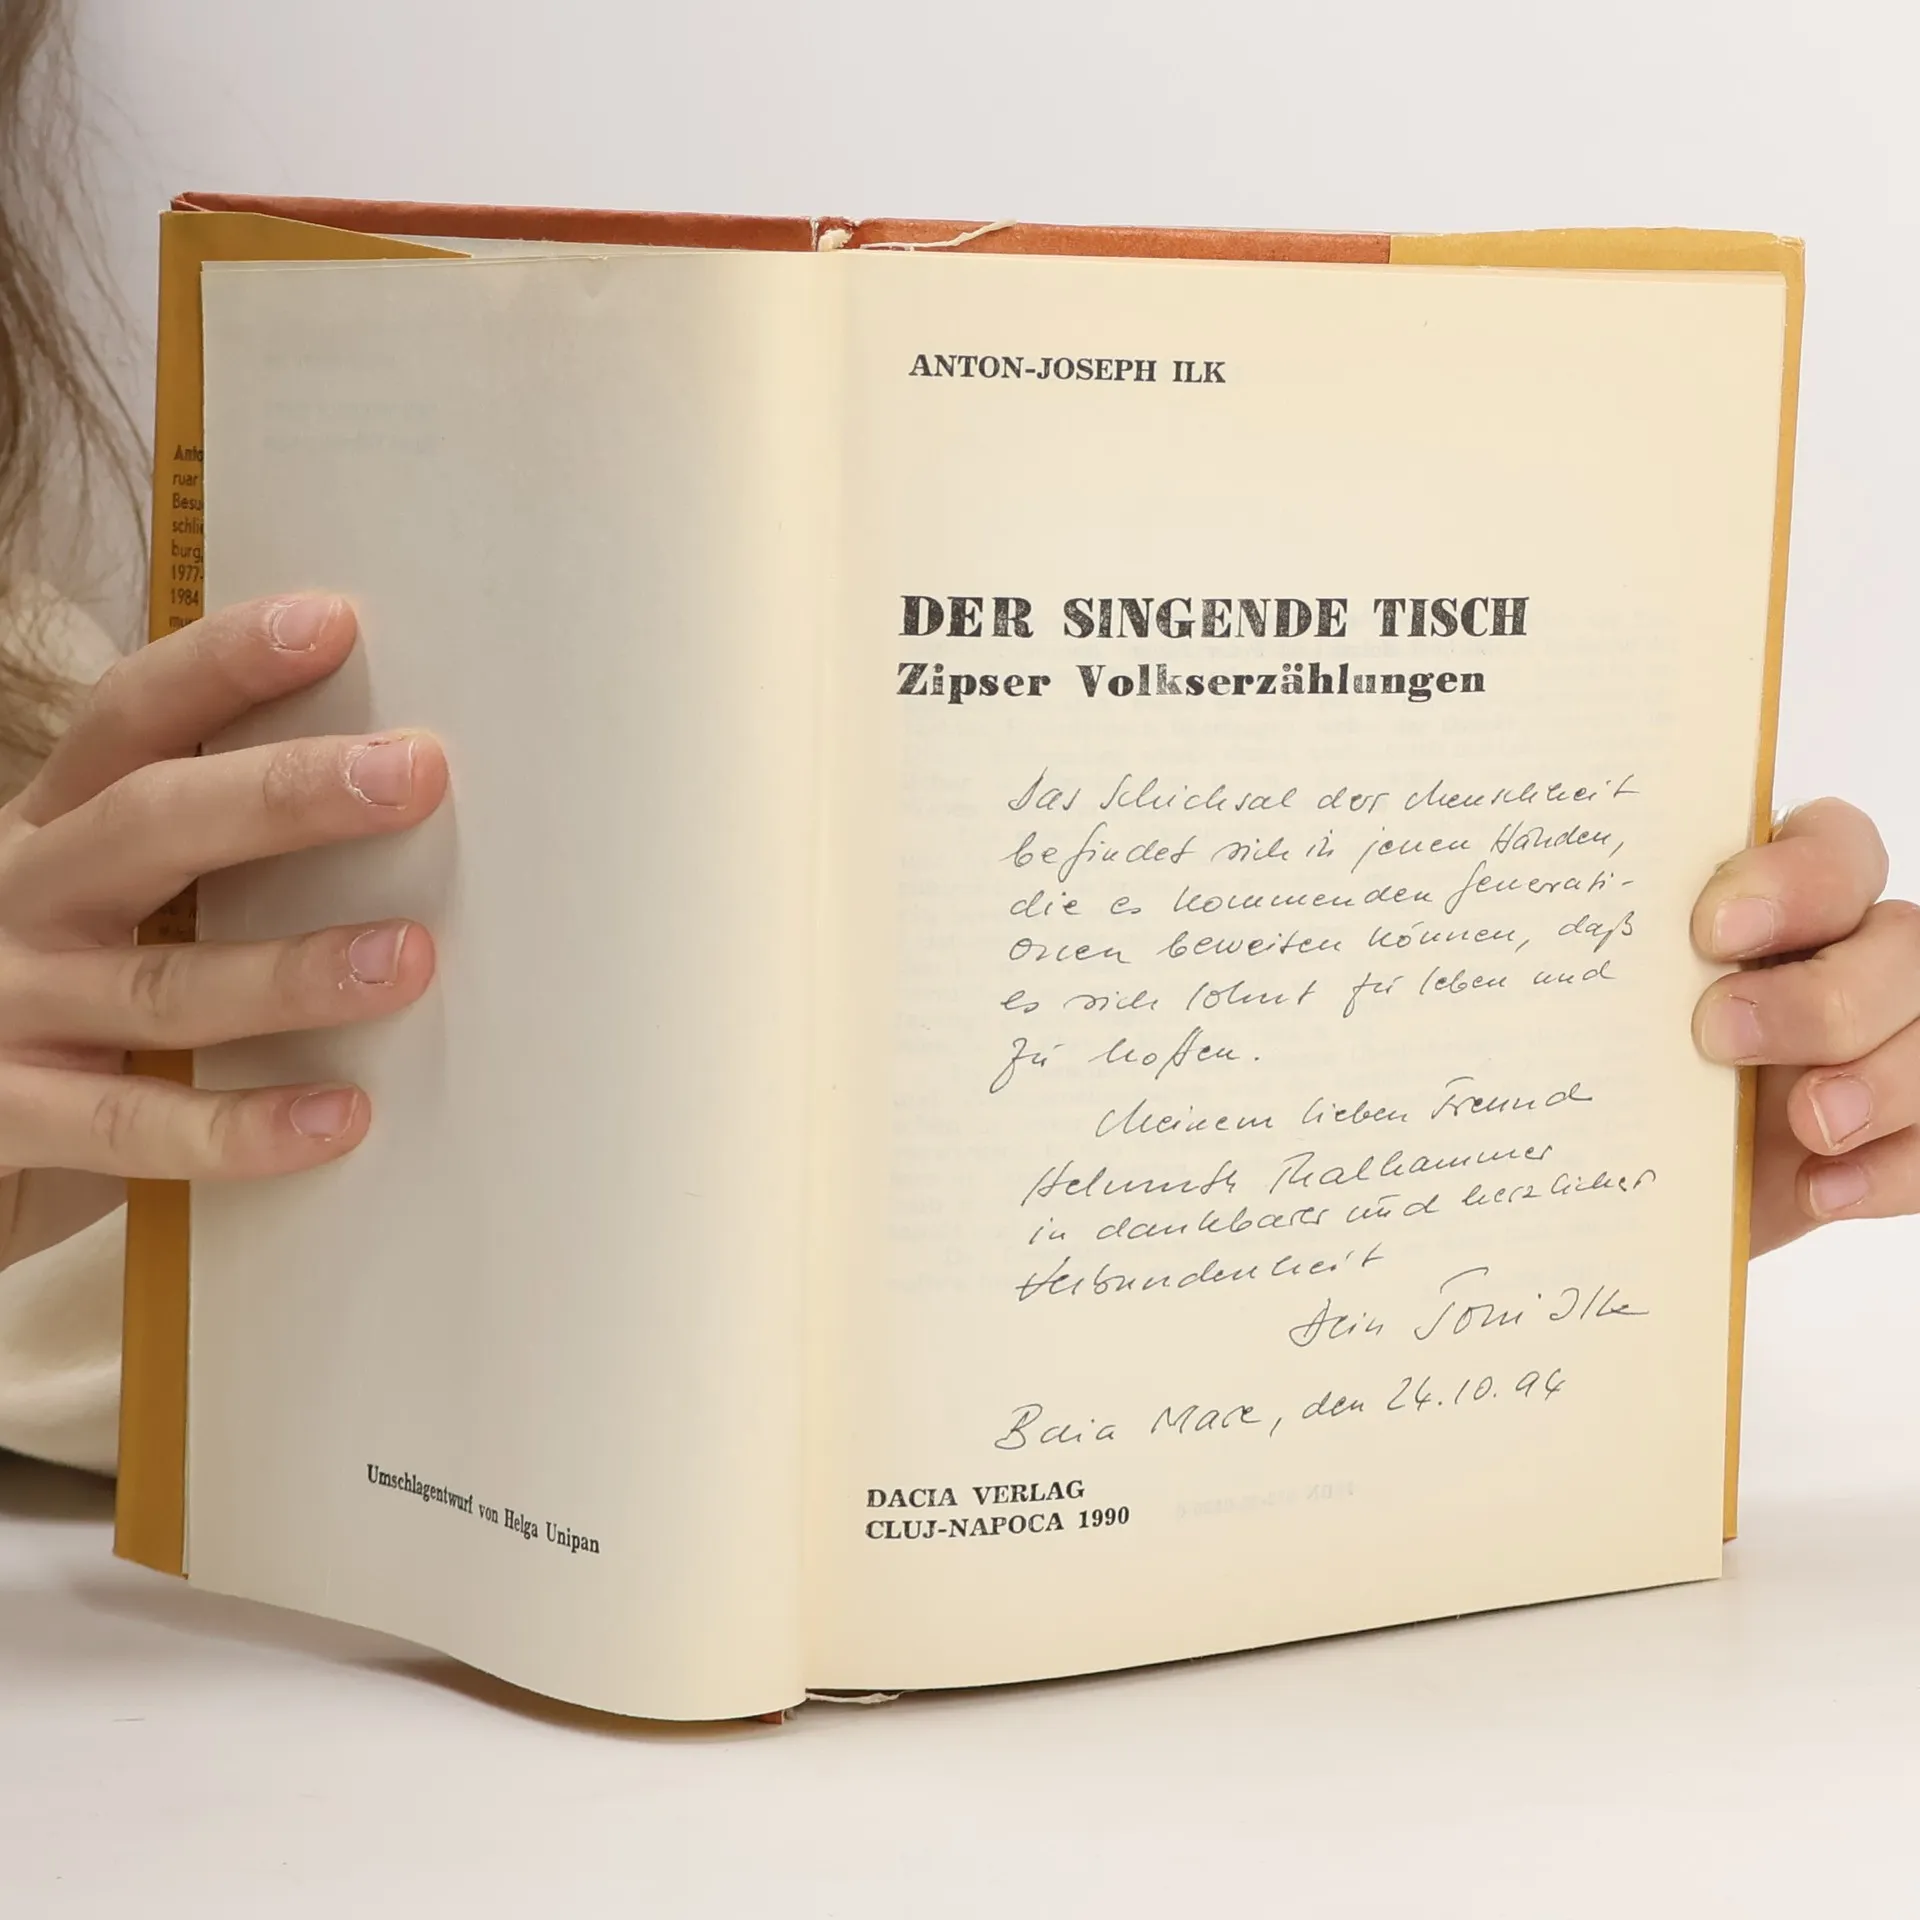 Anto
ruar
Besu
schli
burg,
1977-
1984
Umschlagentwurf von Helga Unipan
ANTON-JOSEPH ILK
DER SINGENDE TISCH
Zipser Volkserzählungen
Das Schicksal der Menschheit
befindet sich in jenen Händen,
die es kommenden Generati-
onen beweisen können, daß
es sich lohnt zu leben und
zu hoffen.
Meinem lieben Freund
Helmuth Thalhammer
in dankbarer und herzlicher
Verbundenheit
Dein Toni Ilk
Baia Mare, den 24.10.94
DACIA VERLAG
CLUJ-NAPOCA 1990